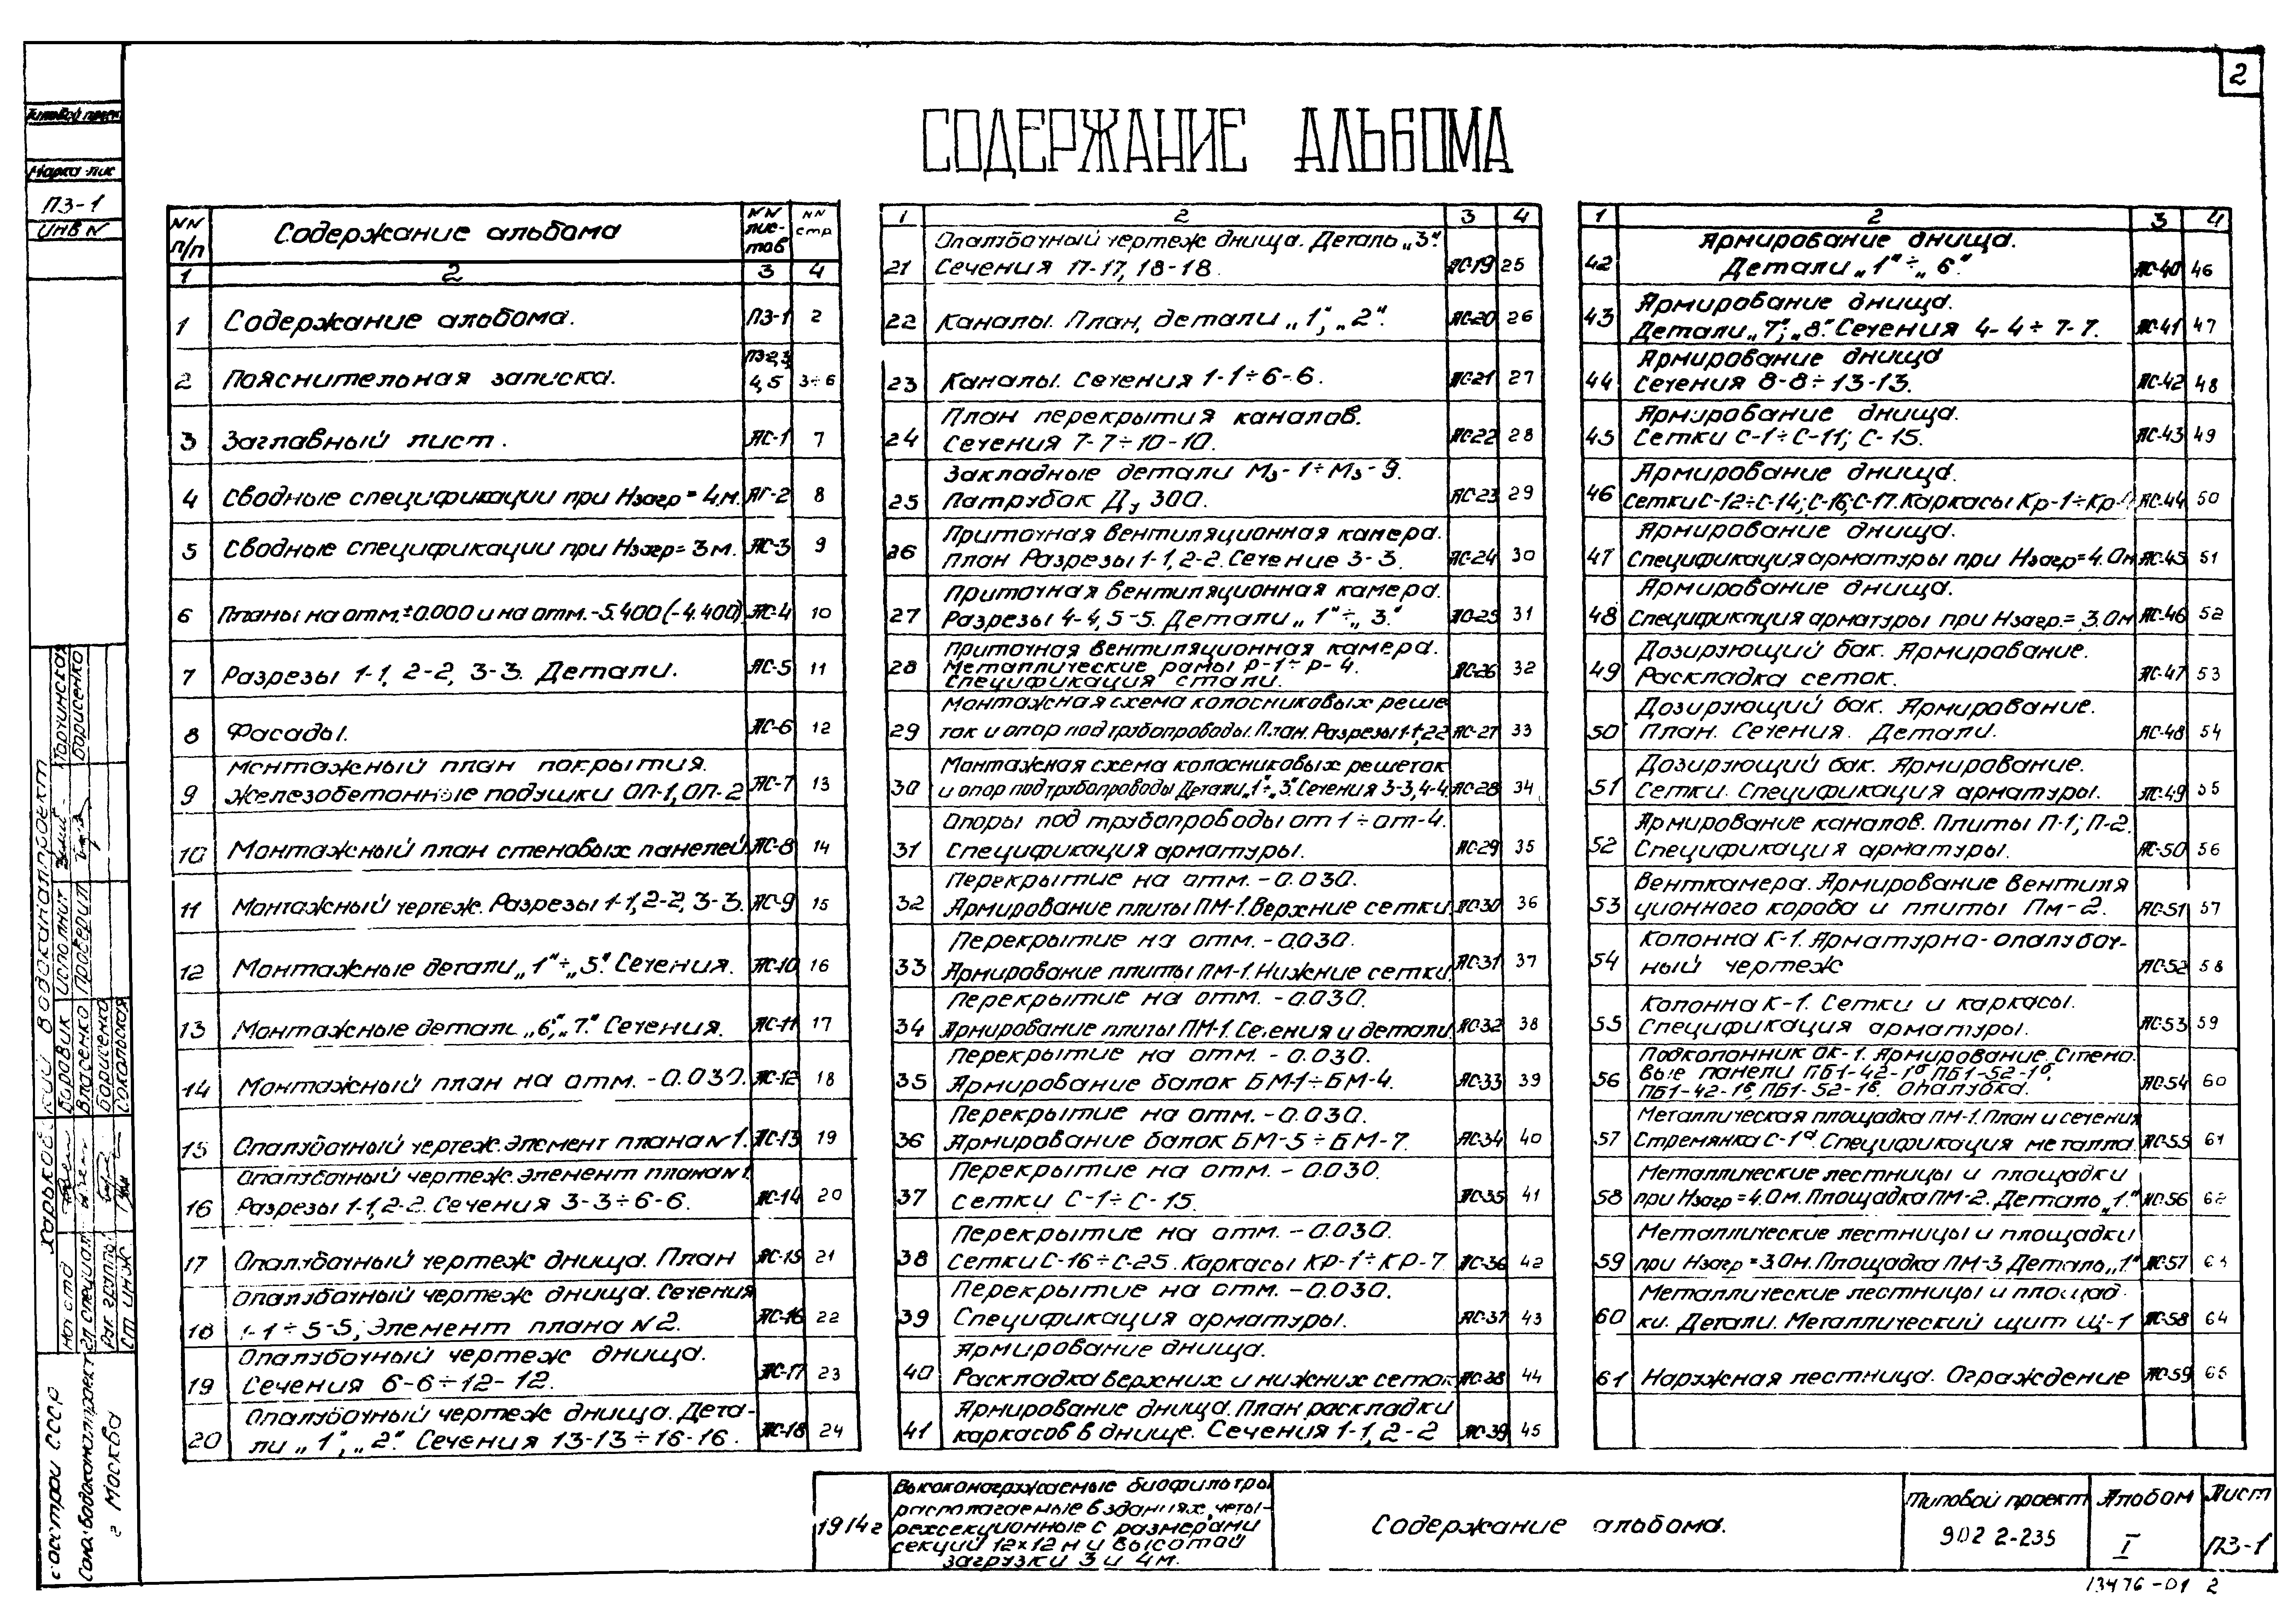 2
СОДЕРЖАНИЕ АЛЬБОМА
Марка лис
ПЗ-1
ИНВ N
NN п/п Содержание альбома NN листов NN стр
1 2 3 4
1 Содержание альбома. ПЗ-1 2
2 Пояснительная записка. ПЗ-2,3, 4,5 3÷6
3 Заглавный лист. АС-1 7
4 Сводные спецификации при Hзагр=4м. АС-2 8
5 Сводные спецификации при Hзагр=3м. АС-3 9
6 Планы на отм.±0.000 и на отм.-5.400(-4.400) АС-4 10
7 Разрезы 1-1, 2-2, 3-3. Детали. АС-5 11
8 Фасады. АС-6 12
9 Монтажный план покрытия.
Железобетонные подушки ОП-1, ОП-2 АС-7 13
10 Монтажный план стеновых панелей АС-8 14
11 Монтажный чертеж. Разрезы 1-1, 2-2, 3-3. АС-9 15
12 Монтажные детали „1"÷„5". Сечения. АС-10 16
13 Монтажные детали „6";„7". Сечения. АС-11 17
14 Монтажный план на отм. -0.030. АС-12 18
15 Опалубочный чертеж. Элемент плана N1. АС-13 19
16 Опалубочный чертеж. Элемент плана N1.
Разрезы 1-1, 2-2. Сечения 3-3÷6-6. АС-14 20
17 Опалубочный чертеж днища. План АС-15 21
18 Опалубочный чертеж днища. Сечения
1-1÷5-5; Элемент плана N2. АС-16 22
19 Опалубочный чертеж днища.
Сечения 6-6÷12-12. АС-17 23
20 Опалубочный чертеж днища. Дета-
ли „1"; „2". Сечения 13-13÷16-16. АС-18 24
1 2 3 4
21 Опалубочный чертеж днища. Деталь „3".
Сечения 17-17, 18-18. АС-19 25
22 Каналы. План, детали „1"; „2". АС-20 26
23 Каналы. Сечения 1-1÷6-6. АС-21 27
24 План перекрытия каналов.
Сечения 7-7÷10-10. АС-22 28
25 Закладные детали Мз-1÷Мз-9.
Патрубок Ду 300. АС-23 29
26 Приточная вентиляционная камера.
План Разрезы 1-1, 2-2. Сечение 3-3. АС-24 30
27 Приточная вентиляционная камера.
Разрезы 4-4, 5-5. Детали „1"÷„3." АС-25 31
28 Приточная вентиляционная камера.
Металлические рамы Р-1÷Р-4.
Спецификация стали. АС-26 32
29 Монтажная схема колосниковых реше
ток и опор под трубопроводы. План. Разрезы 1-1, 2-2 АС-27 33
30 Монтажная схема колосниковых решеток
и опор под трубопроводы Детали „1"÷„3". Сечения 3-3, 4-4 АС-28 34
31 Опоры под трубопроводы от 1÷от-4.
Спецификация арматуры. АС-29 35
32 Перекрытие на отм. -0.030.
Армирование плиты ПМ-1. Верхние сетки АС-30 36
33 Перекрытие на отм. -0.030.
Армирование плиты ПМ-1. Нижние сетки АС-31 37
34 Перекрытие на отм. -0.030.
Армирование плиты ПМ-1. Сечения и детали АС-32 38
35 Перекрытие на отм. -0.030.
Армирование балок БМ-1÷БМ-4. АС-33 39
36 Перекрытие на отм. -0.030.
Армирование балок БМ-5÷БМ-7. АС-34 40
37 Перекрытие на отм. -0.030.
Сетки С-1÷С-15. АС-35 41
38 Перекрытие на отм. -0.030.
Сетки С-16÷С-25. Каркасы КР-1÷КР-7. АС-36 42
39 Перекрытие на отм. -0.030.
Спецификация арматуры. АС-37 43
40 Армирование днища.
Раскладка верхних и нижних сеток АС-38 44
41 Армирование днища. План раскладки
каркасов в днище. Сечения 1-1, 2-2 АС-39 45
1 2 3 4
42 Армирование днища.
Детали „1"÷„6". АС-40 46
43 Армирование днища.
Детали „7"; „8". Сечения 4-4÷7-7. АС-41 47
44 Армирование днища
Сечения 8-8÷13-13. АС-42 48
45 Армирование днища.
Сетки С-1÷С-11; С-15. АС-43 49
46 Армирование днища.
Сетки С-12÷С-14; С-16, С-17. Каркасы Кр-1÷Кр- АС-44 50
47 Армирование днища.
Спецификация арматуры при Hзагр=4.0м АС-45 51
48 Армирование днища.
Спецификация арматуры при Hзагр.=3.0м АС-46 52
49 Дозирующий бак. Армирование.
Раскладка сеток. АС-47 53
50 Дозирующий бак. Армирование.
План. Сечения. Детали. АС-48 54
51 Дозирующий бак. Армирование.
Сетки. Спецификация арматуры. АС-49 55
52 Армирование каналов. Плиты П-1; П-2.
Спецификация арматуры. АС-50 56
53 Венткамера. Армирование вентиля
ционного короба и плиты Пм-2. АС-51 57
54 Колонна К-1. Арматурно-опалубоч-
ный чертеж АС-52 58
55 Колонна К-1. Сетки и каркасы.
Спецификация арматуры. АС-53 59
56 Подколонник ОК-1. Армирование. Стено-
вые панели ПБ1-42-1а, ПБ1-52-1а,
ПБ1-42-1в, ПБ1-52-1в. Опалубка. АС-54 60
57 Металлическая площадка ПМ-1. План и сечения
Стремянка С-1а. Спецификация металла. АС-55 61
58 Металлические лестницы и площадки
при Hзагр=4.0м. Площадка ПМ-2. Деталь „1." АС-56 62
59 Металлические лестницы и площадки
при Hзагр=3.0м. Площадка ПМ-3 Деталь „1" АС-57 63
60 Металлические лестницы и площад-
ки. Детали. Металлический щит Щ-1 АС-58 64
61 Наружная лестница. Ограждение АС-59 65
Госстрой СССР
Союзводоканалпроект
г Москва
Харьковский водоканалпроект
Нач отд Боровик
Гл. специал Власенко
Рук группы Борисенко
Ст инж Сокольская
Исполнит
Проверил Борисенко
1974г
Высоконагружаемые биофильтры
располагаемые в зданиях, четы-
рехсекционные с размерами
секций 12×12м и высотой
загрузки 3 и 4м.
Содержание альбома.
Типовой проект
902 2-235
Альбом
I
Лист
ПЗ-1
13476-01 2